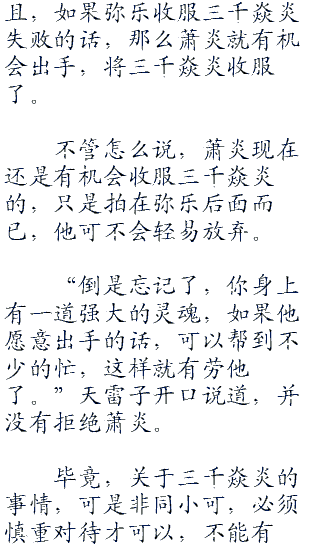 且，如果弥乐收服三千焱炎
失败的话，那么萧炎就有机
会出手，将三千焱炎收服
了。
不管怎么说，萧炎现在
还是有机会收服三千焱炎
的，只是拍在弥乐后面而
已，他可不会轻易放弃。
“倒是忘记了，你身上
有一道强大的灵魂，如果他
愿意出手的话，可以帮到不
少的忙，这样就有劳他
了。”天雷子开口说道，并
没有拒绝萧炎。
毕竟，关于三千焱炎的
事情，可是非同小可，必须
慎重对待才可以，不能有